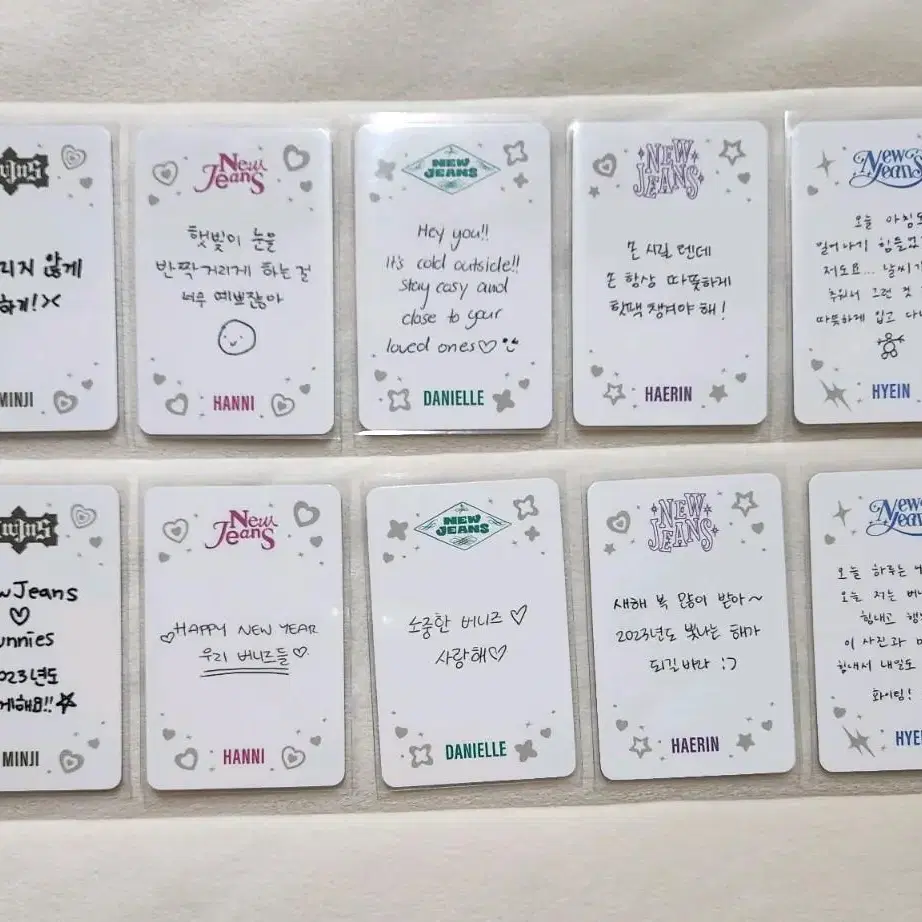 리지 않게
하게!><
MINJI
New
Jeans
햇빛이 눈을
반짝거리게 하는 걸
너무 예쁘잖아
HANNI
NEW
JEANS
Hey you!!
It's cold outside!!
Stay cosy and
close to your
loved ones♡
DANIELLE
NEW
JEANS
손 시릴 텐데
손 항상 따뜻하게
핫팩 챙겨야 해!
HAERIN
New
Jeans
오늘 아침
일어나기 힘들었
저도요... 날씨가
추워서 그런 것
따뜻하게 입고 다니
HYEIN
w Jeans
♡
unnies
023년도
께해요!!☆
MINJI
New
Jeans
♡HAPPY NEW YEAR
우리 버니즈들♡
HANNI
NEW
JEANS
소중한 버니즈♡
사랑해♡
DANIELLE
NEW
JEANS
새해 복 많이 받아~
2023년도 빛나는 해가
되길 바라 :)
HAERIN
New
Jeans
오늘 하루는
오늘 저는 버니
힘내고 행
이 사진과
힘내서 내일도
화이팅!
HYEI